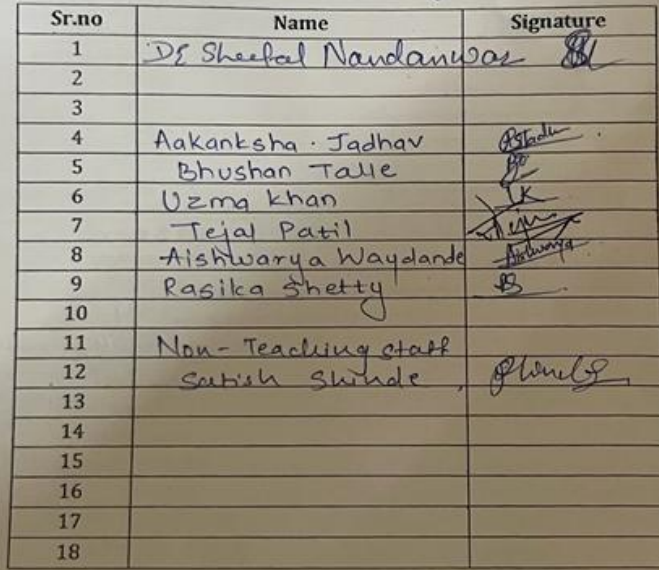 Sr.no Name Signature
1 Dr Sheetal Nandanwar
2
3
4 Aakanksha . Jadhav
5 Bhushan Talle
6 Uzma Khan TK
7 Tejal Patil Teju
8 Aishwarya Waydande Aishwarya
9 Rasika Shetty RS
10
11 Non-Teaching staff
12 Satish Shinde
13
14
15
16
17
18